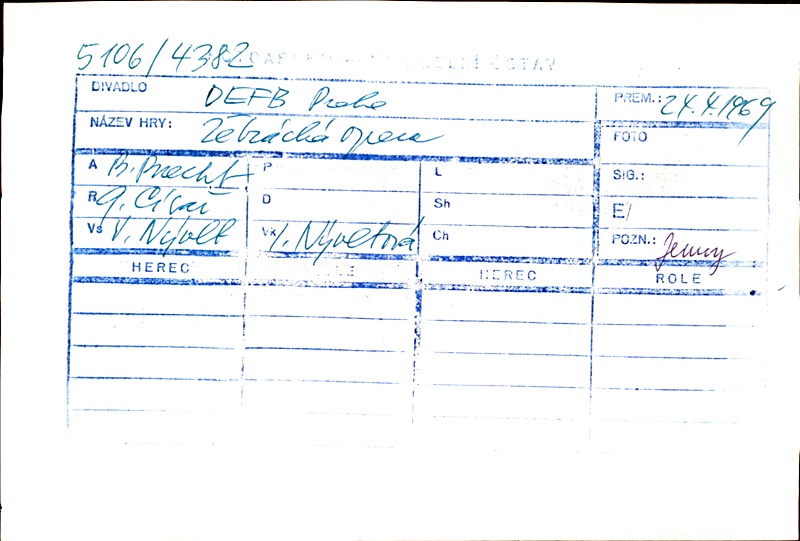 5106/4382
DIVADLO DEFB Praha PREM.: 24.4.1969
NÁZEV HRY: Žebrácká opera FOTO
A B. Brecht P L SIG.:
R D Sh E/
Vs V. Nývlt Vk V. Nývltová Ch POZN.: Jenny
HEREC ROLE HEREC ROLE